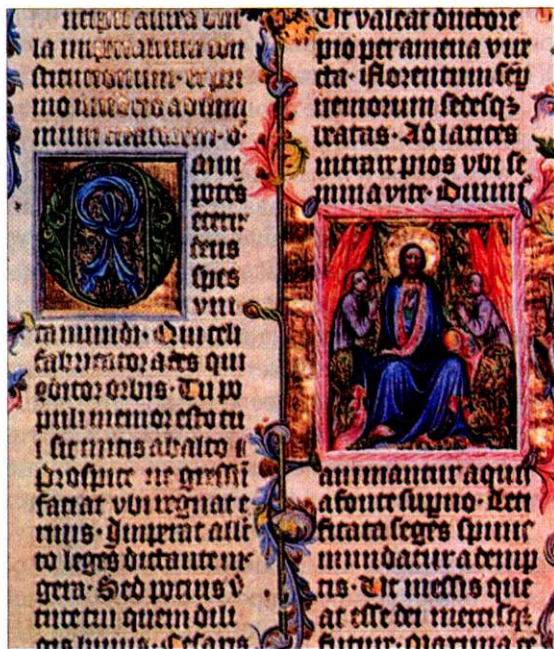 incipit aurea bul
la imperialium con
stitucionum · et pri
mo
creatorem · o
mni
potens
eterne
deus
spes
vni
ca mundi · Qui celi
fabricator ades qui
conditor orbis · Tu po
puli memor esto tu
i sic mitis ab alto
Prospice ne gressū
faciat vbi regnat e
rinis · Imperat alle
cto leges dictante me
gera · Sed pocius v
tute tui quem dili
gis huius · Cesaris
Ut valeat ductore
pio per amena vire
cta · Florentum sep̄
nemorum sedesqȝ
beatas · Ad latices
intrare pios vbi se
mina vite · Diuinis
animantur aquis
a fonte supno · Leti
ficata seges spinis
mundatur ademp
tis · Ut messis que
at esse dei mercisqȝ
future · Maxima ce